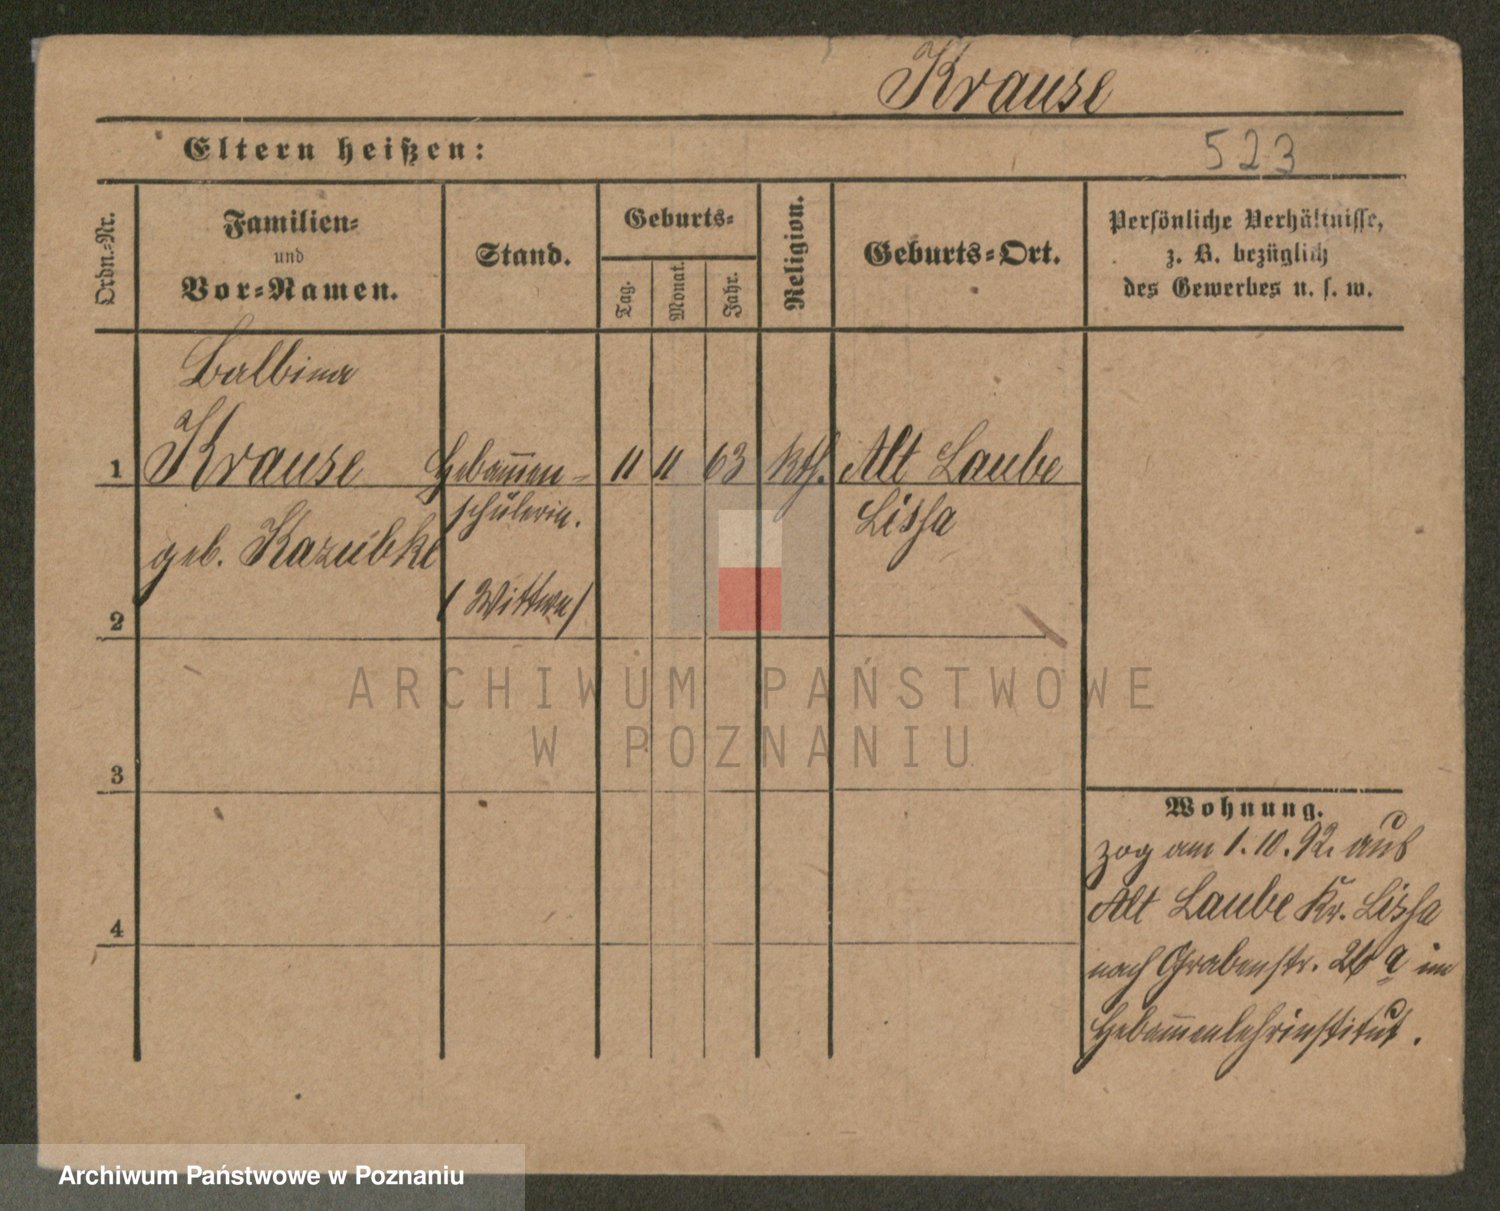 Krause
Eltern heißen:
523
Ordn.-Nr.
Familien-
und
Vor-Namen.
Stand.
Geburts-
Tag.
Monat.
Jahr.
Religion.
Geburts-Ort.
Persönliche Verhältnisse,
z. B. bezüglich
des Gewerbes u. s. w.
Balbina
1 Krause Hebam̅en- 11 11 63 kth. Alt Laube
schülerin. Lissa
geb. Kazubke
(Wittwe)
2
ARCHIWUM PAŃSTWOWE
W POZNANIU
3
Wohnung.
zog am 1.10.92. aus
Alt Laube Kr. Lissa
4
nach Grabenstr. 26 a im
Hebam̅enlehrinstitut.
Archiwum Państwowe w Poznaniu